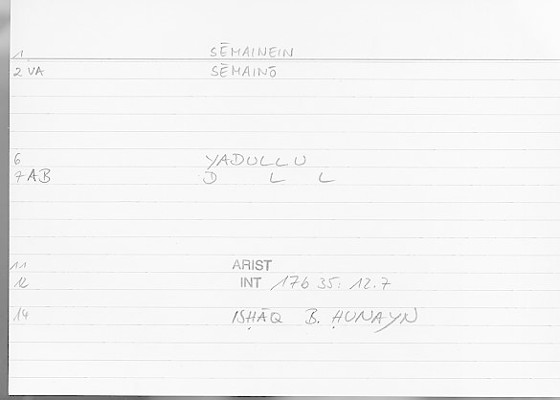 1 SĒMAINEIN
2 VA SĒMAINŌ
6 YADULLU
7 AB D L L
11 ARIST
12 INT 17b 35: 12.7
14 ISḤĀQ B. ḤUNAYN